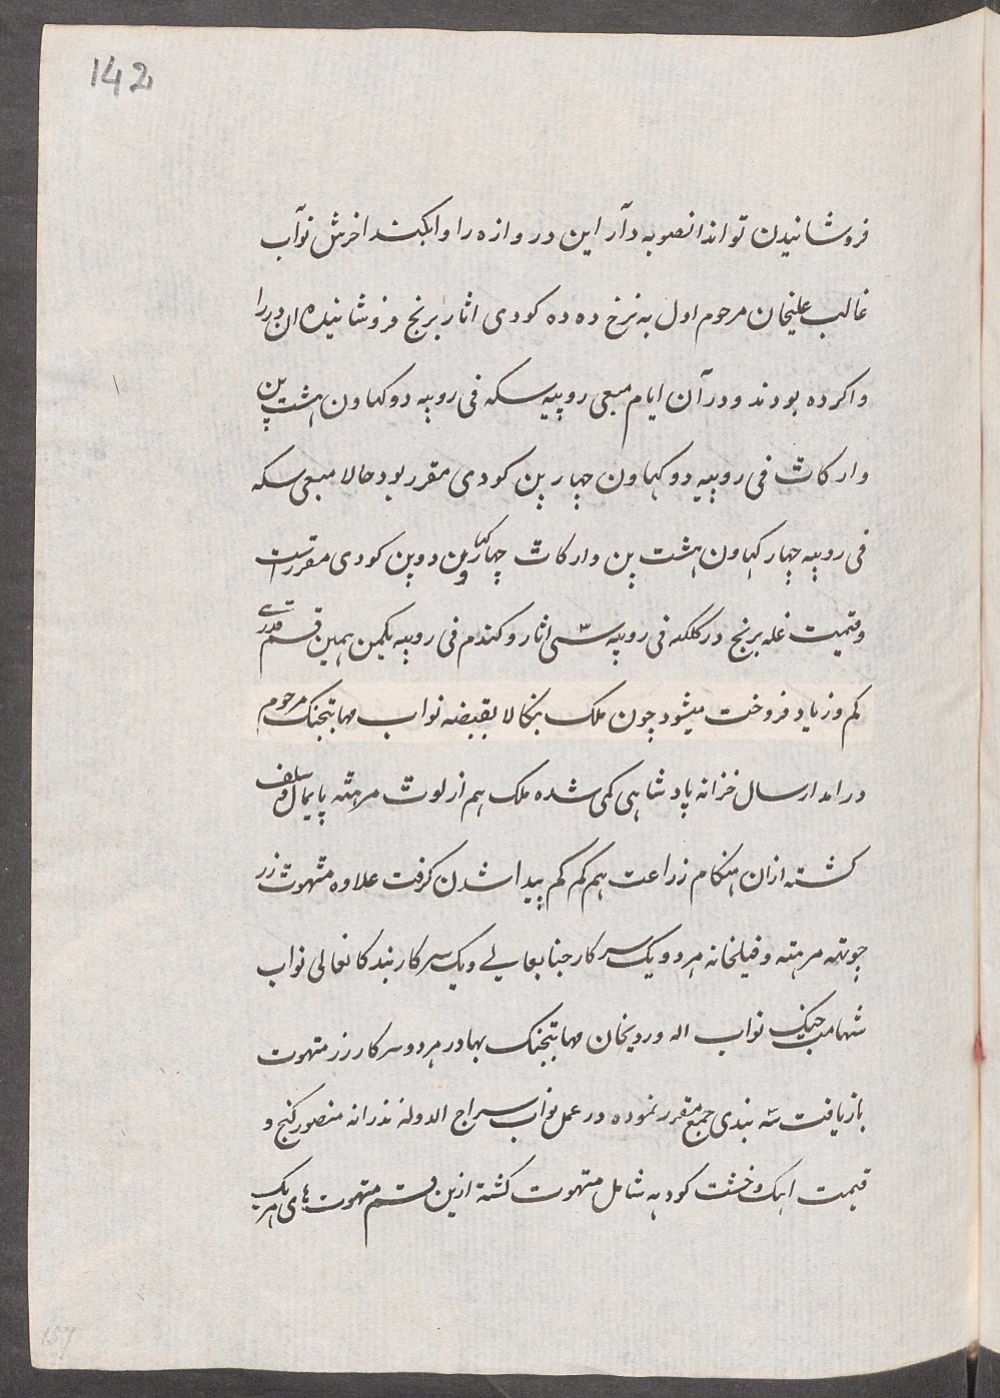 142
فروشانیدن تواند انصوبه دآر این دروازه را وا بکند اخرش نوآب
غالب علیخان مرحوم اول به نرخ ده ده کودی اثار برنج فروشانیده ان در را
واکرده بودند و درآن ایام مبعی روپیه سکه فی روپیه دو کهاون هشت پن
وارکاٹ فی روپیه دو کهاون چهار پن کودی مقرر بود حالا مبعی سکه
فی روپیه چهار کهاون هشت پن و ارکاٹ چهار کهاون دو پن کودی مقررست
و قیمت غله برنج در کلکته فی روپیه سی اثار و کندم فی روپیه یکمن همین قسم قدری
کم و زیاد فروخت میشود چون ملک بنکالا بقبضه نواب مهابتجنک مرحوم
درامد ارسال خزانه پادشاهی کمی شده ملک هم از لوٹ مرهٹه پایمال و تلف
کشته ازان هنکام زراعت هم کم کم پیدا شدن کرفت علاوه متهوت زر
چوتهه مرهٹه و فیلخانه هر دو یک سرکار جنابعالے و یک سرکار بندکانعالی نواب
شهامت جنک نواب اله وردیخان مهابتجنک بهادر هر دو سرکار زر متهوت
بازیافت سه بندی جمع مقرر نموده در عمل نواب سراج الدوله نذرانه منصور کنج و
قیمت اهک و خشت کود به شامل متهوت کشته ازین قسم متهوت های هر یک
157